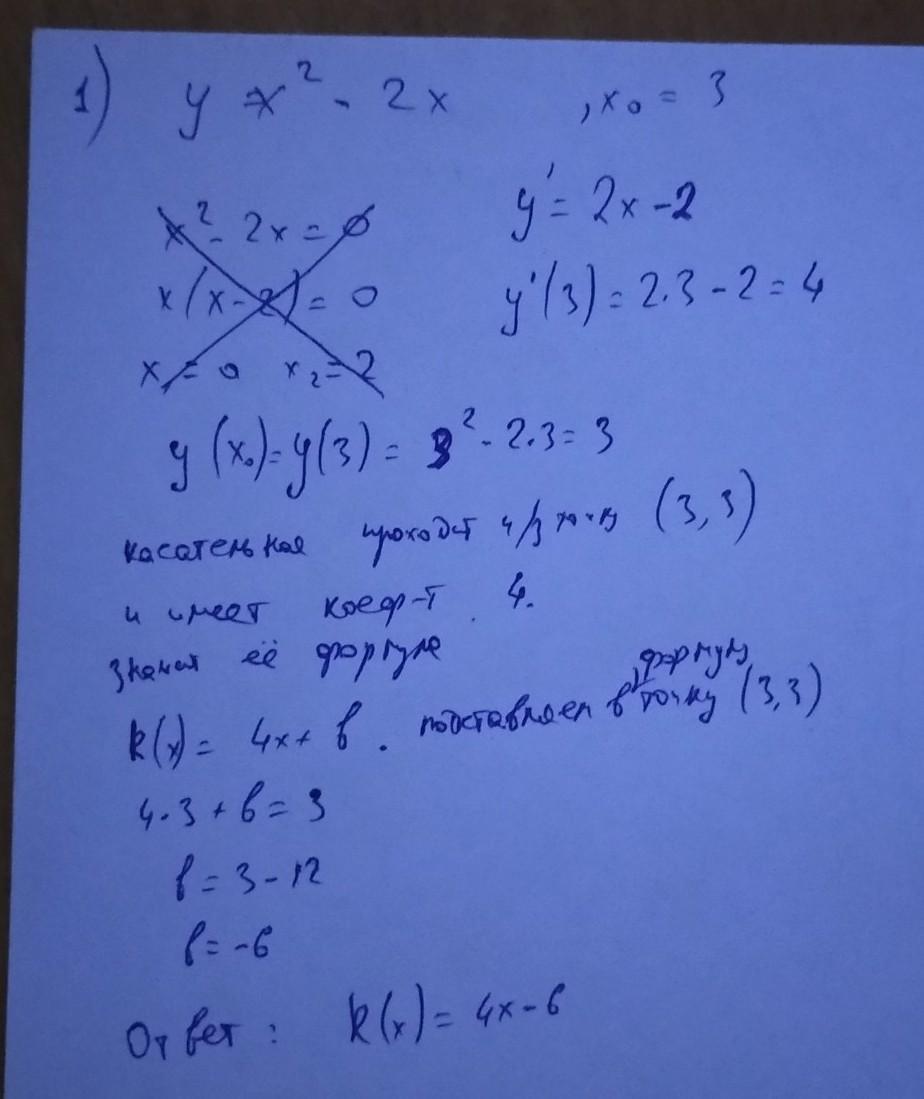 1) y = x² - 2x , x₀ = 3
x² - 2x = 0
x(x-2) = 0
x = 0 x₂ = 2
y' = 2x - 2
y'(3) = 2·3 - 2 = 4
y(x₀) = y(3) = 3² - 2·3 = 3
касательная проходит ч/з точку (3,3)
и имеет коэф-т 4.
значит её формула
k(x) = 4x + b. подставляем в формулу точку (3,3)
4·3 + b = 3
b = 3 - 12
b = -6
Ответ: k(x) = 4x - 6